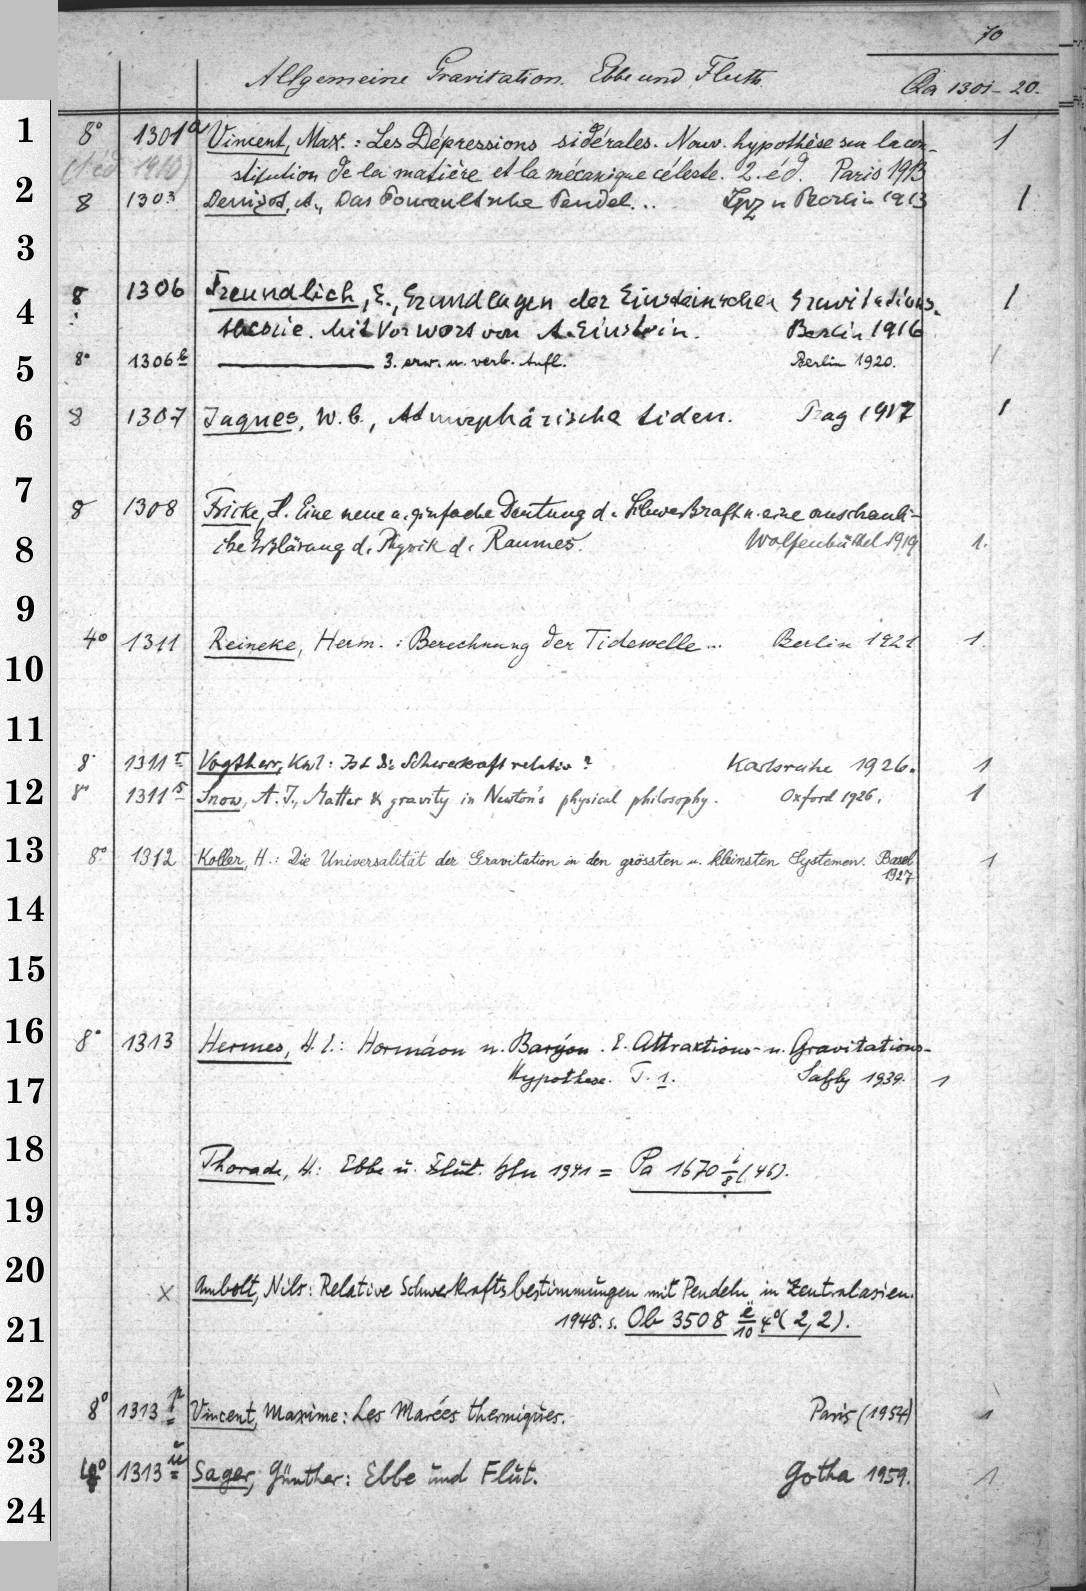 70
Allgemeine Gravitation. Ebbe und Fluth.
Qa 1301-20.
1 8° 1301a Vincent, Max. : Les Dépressions sidérales. Nouv. hypothèse sur la con- 1
(1 éd 1910) stitution de la matière et la mécanique céleste. 2. éd. Paris 1913
2 8 1303 Denizot, A., Das Foucaultsche Pendel... Lpz u Berlin 1913 1
3
4 8 1306 Freundlich, E., Grundlagen der Einsteinschen Gravitations- 1
theorie. Mit Vorwort von A. Einstein. Berlin 1916
5 8° 1306b ——— 3. erw. u. verb. Aufl. Berlin 1920. 1
6 8 1307 Jaques, W. C., Atmosphärische Tiden. Prag 1917 1
7
8 1308 Fricke, H. Eine neue u. einfache Deutung d. Schwerkraft u. eine anschauli-
8 che Erklärung d. Physik d. Raumes. Wolfenbüttel 1919 1.
9
4° 1311 Reineke, Herm. : Berechnung der Tidewelle... Berlin 1921 1.
10
11
8° 1311r Vogtherr, Karl : Ist die Schwerkraft relativ? Karlsruhe 1926. 1
12 8° 1311s Snow, A. J., Matter & gravity in Newton's physical philosophy. Oxford 1926. 1
13 8° 1312 Koller, H. : Die Universalität der Gravitation in den grössten u. kleinsten Systemen. Basel 1
1927
14
15
16 8° 1313 Hermes, H. : Hormáon u. Barýon. E. Attraktions- u. Gravitations-
17 Hypothese. T. 1. 1939. 1
18 Thorade, H. : Ebbe u. Flut. Bln 1941 = Pa 1670 i/8 (46).
19
20 x Ambolt, Nils : Relative Schwerkraftsbestimmungen mit Pendeln in Zentralasien.
21 1948. s. Ob 3508 e/10 4° (2,2).
22 8° 1313p Vincent, Maxime : Les Marées thermiques. Paris (1954) 1
23 1313u Sager, Günther : Ebbe und Flut. Gotha 1959. 1
24